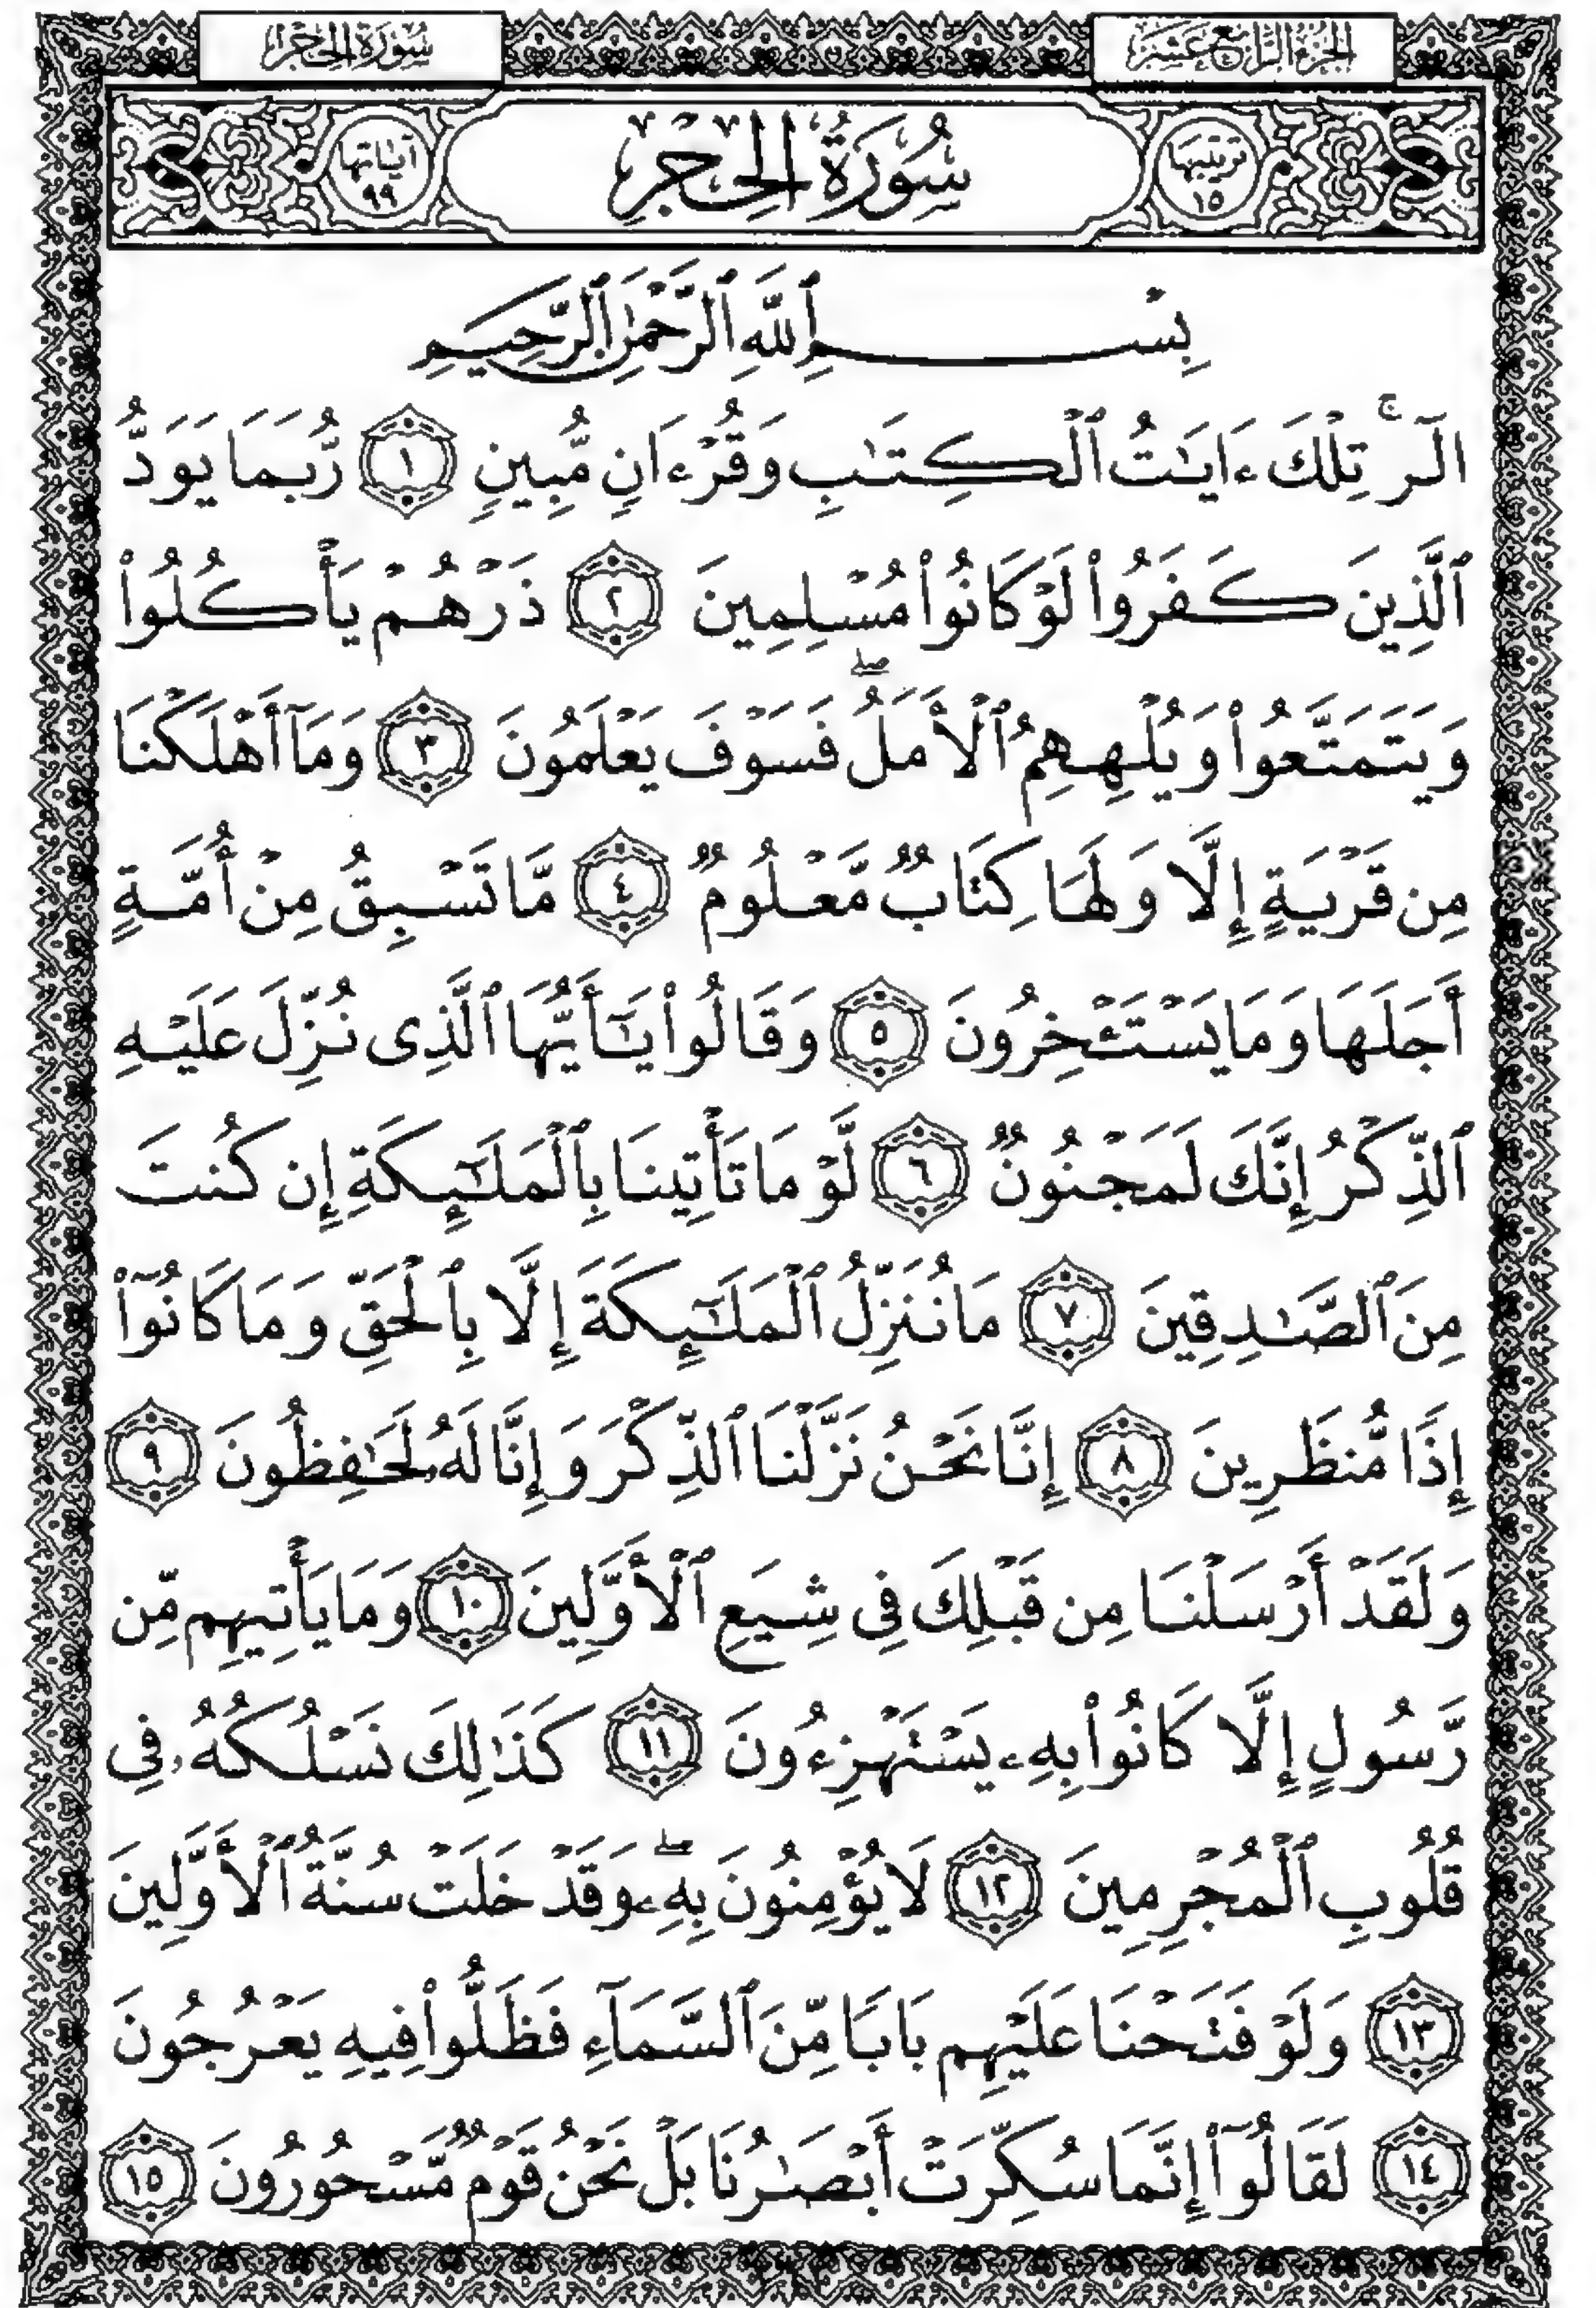 الجزء الرابع عشر
سورة الحجر
ترتيبها
١٥
سُورَةُ الحِجْرِ
آياتها
٩٩
بِسْمِ ٱللَّهِ ٱلرَّحْمَٰنِ ٱلرَّحِيمِ
الٓرۚ تِلْكَ ءَايَٰتُ ٱلْكِتَٰبِ وَقُرْءَانٍ مُّبِينٍ ١ رُّبَمَا يَوَدُّ
ٱلَّذِينَ كَفَرُوا۟ لَوْ كَانُوا۟ مُسْلِمِينَ ٢ ذَرْهُمْ يَأْكُلُوا۟
وَيَتَمَتَّعُوا۟ وَيُلْهِهِمُ ٱلْأَمَلُۖ فَسَوْفَ يَعْلَمُونَ ٣ وَمَآ أَهْلَكْنَا
مِن قَرْيَةٍ إِلَّا وَلَهَا كِتَابٌ مَّعْلُومٌ ٤ مَّا تَسْبِقُ مِنْ أُمَّةٍ
أَجَلَهَا وَمَا يَسْتَـْٔخِرُونَ ٥ وَقَالُوا۟ يَٰٓأَيُّهَا ٱلَّذِى نُزِّلَ عَلَيْهِ
ٱلذِّكْرُ إِنَّكَ لَمَجْنُونٌ ٦ لَّوْ مَا تَأْتِينَا بِٱلْمَلَٰٓئِكَةِ إِن كُنتَ
مِنَ ٱلصَّٰدِقِينَ ٧ مَا نُنَزِّلُ ٱلْمَلَٰٓئِكَةَ إِلَّا بِٱلْحَقِّ وَمَا كَانُوٓا۟
إِذًا مُّنظَرِينَ ٨ إِنَّا نَحْنُ نَزَّلْنَا ٱلذِّكْرَ وَإِنَّا لَهُۥ لَحَٰفِظُونَ ٩
وَلَقَدْ أَرْسَلْنَا مِن قَبْلِكَ فِى شِيَعِ ٱلْأَوَّلِينَ ١٠ وَمَا يَأْتِيهِم مِّن
رَّسُولٍ إِلَّا كَانُوا۟ بِهِۦ يَسْتَهْزِءُونَ ١١ كَذَٰلِكَ نَسْلُكُهُۥ فِى
قُلُوبِ ٱلْمُجْرِمِينَ ١٢ لَا يُؤْمِنُونَ بِهِۦۖ وَقَدْ خَلَتْ سُنَّةُ ٱلْأَوَّلِينَ
١٣ وَلَوْ فَتَحْنَا عَلَيْهِم بَابًا مِّنَ ٱلسَّمَآءِ فَظَلُّوا۟ فِيهِ يَعْرُجُونَ
١٤ لَقَالُوٓا۟ إِنَّمَا سُكِّرَتْ أَبْصَٰرُنَا بَلْ نَحْنُ قَوْمٌ مَّسْحُورُونَ ١٥